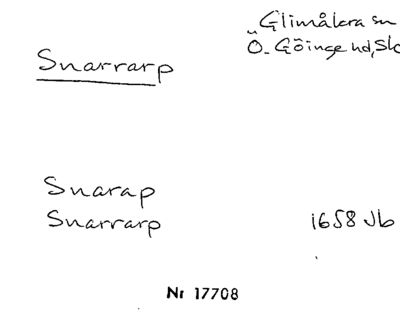 Glimåkra sn
Ö. Göinge hd, Sk
Snarrarp
Snarap
Snarrarp 1658 Jb
Nr 17708